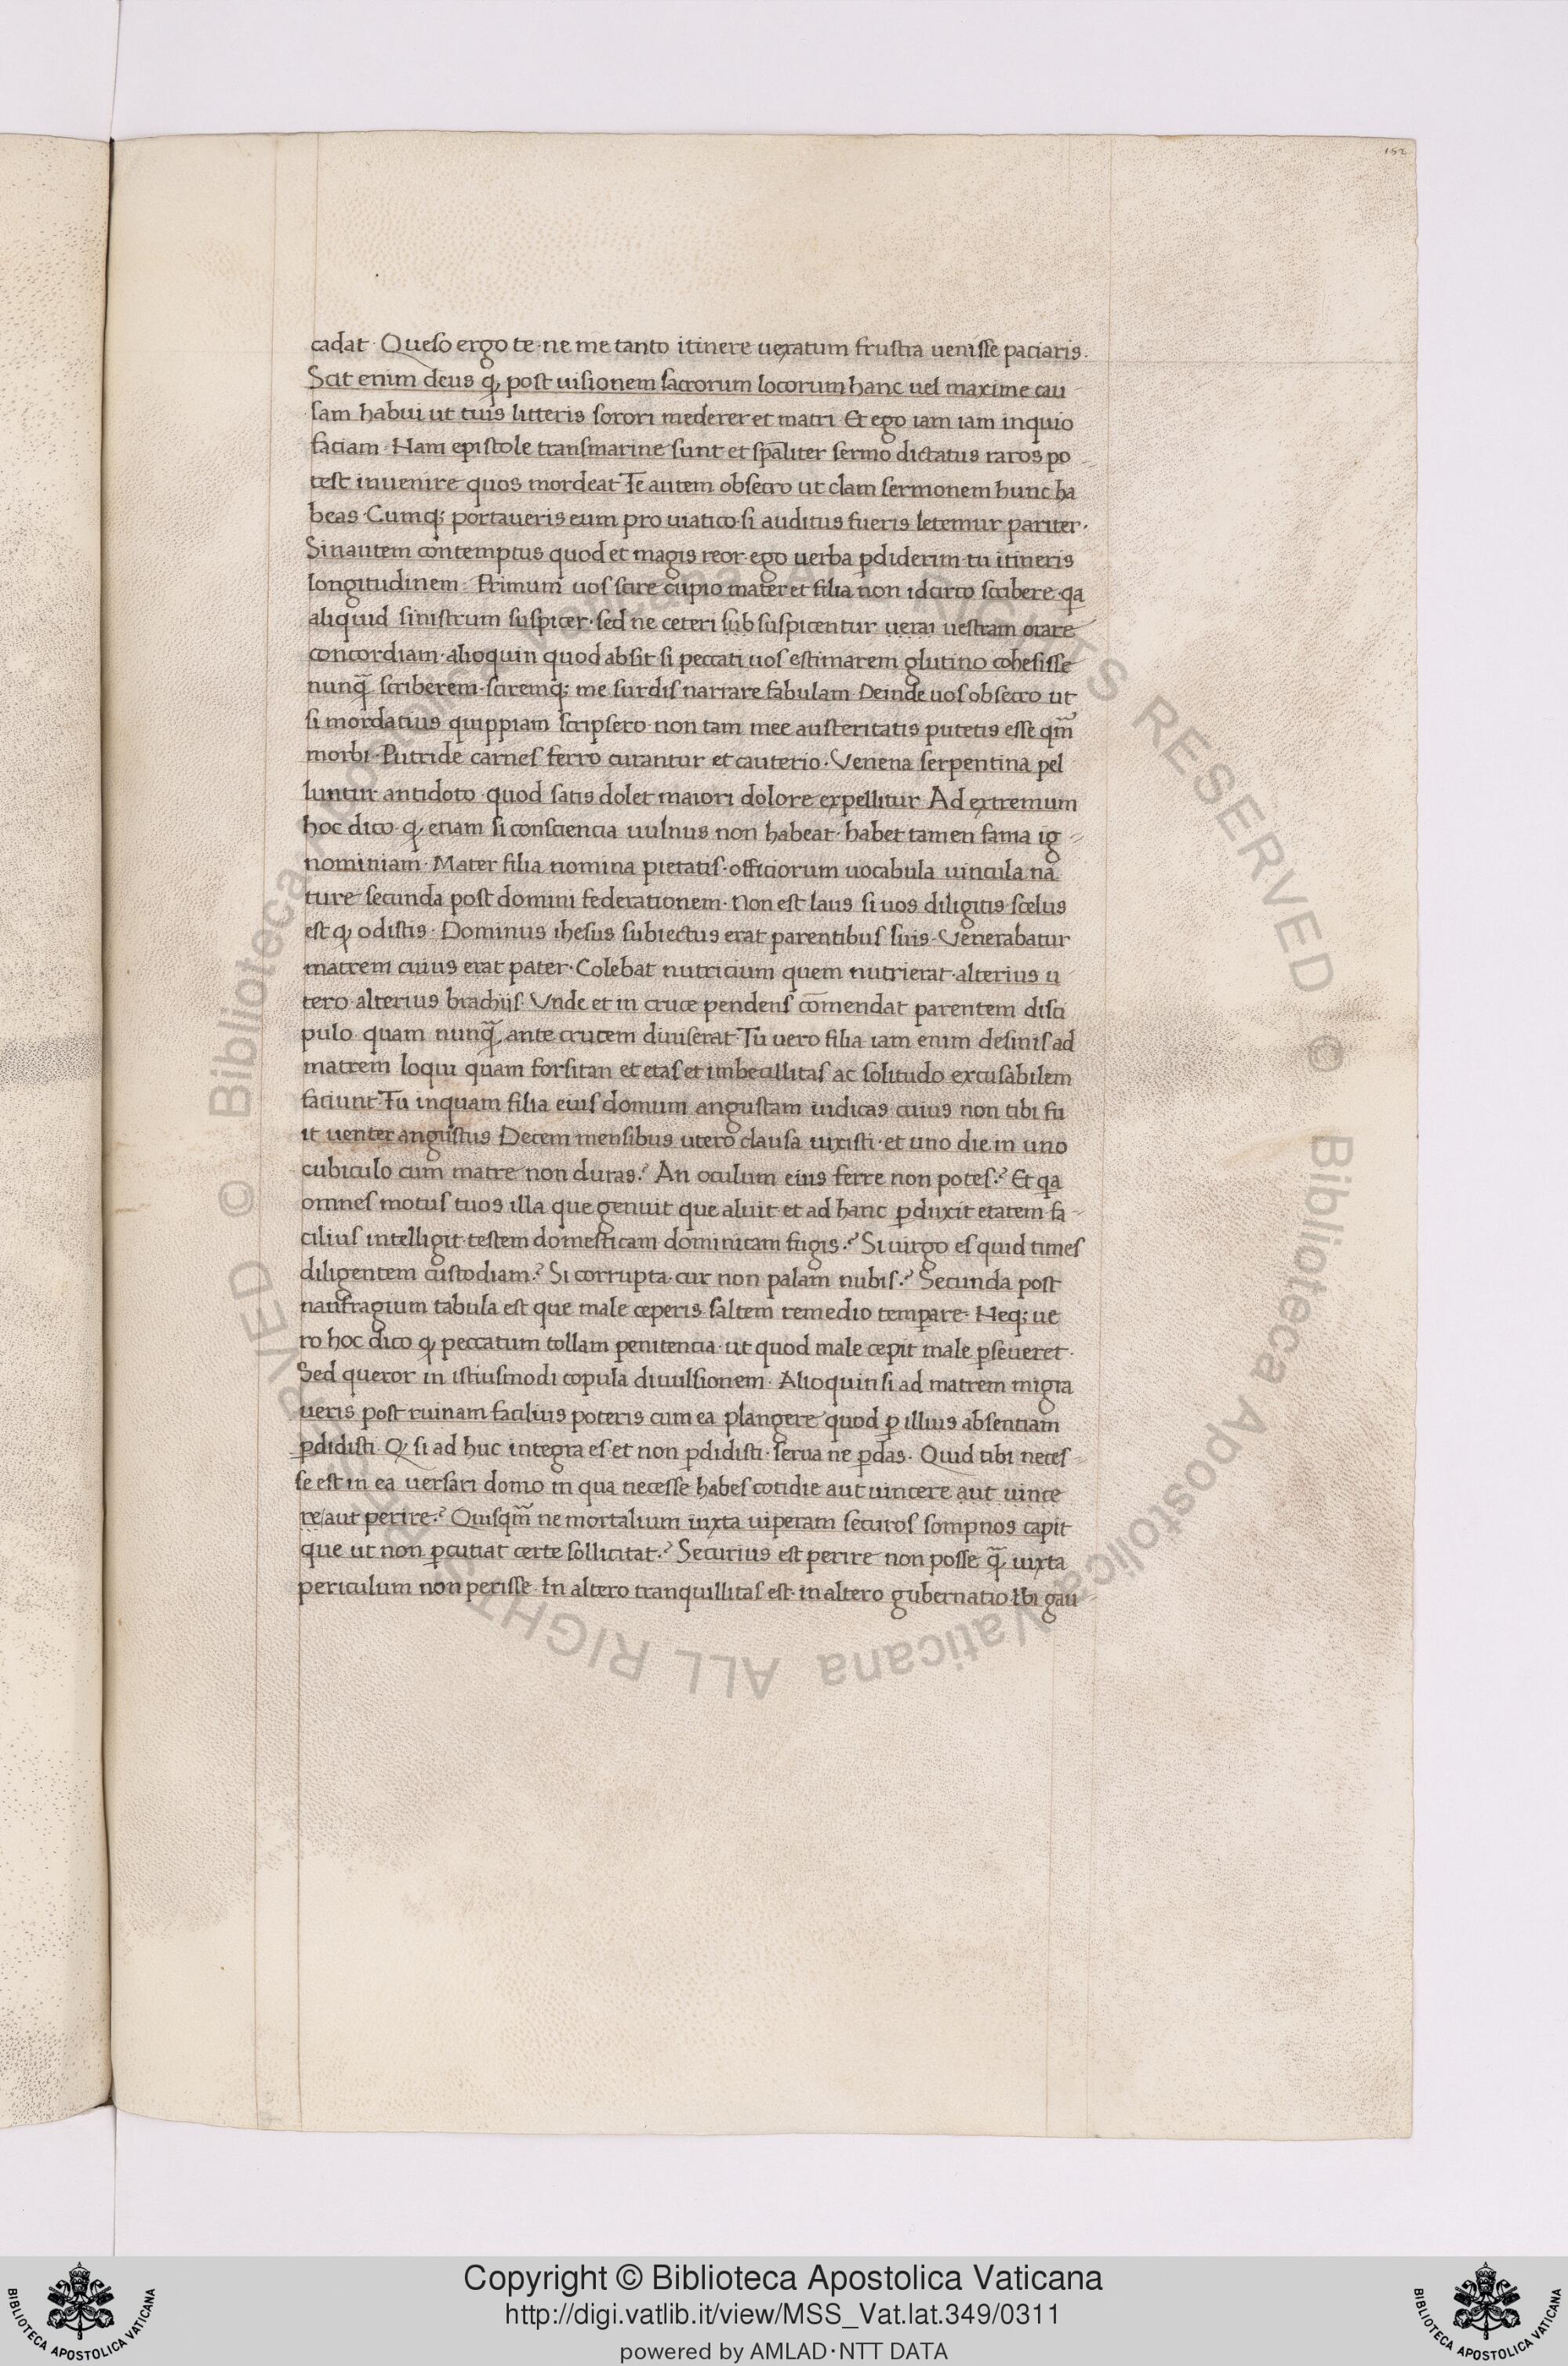 152
cadat· Queso ergo te·ne me tanto itinere uexatum frustra uenisse paciaris.
Scit enim deus ꝙ post uisionem sacrorum locorum hanc uel maxime cau
sam habui ut tuis litteris sorori mederer et matri· Et ego iam iam inquio
faciam· Nam epistole transmarine sunt et sp̄aliter sermo dictatus raros po
test inuenire quos mordeat Te autem obsecro ut clam sermonem hunc ha
beas· Cumq; portaueris eum pro uiatico·si auditus fueris letemur pariter·
Sinautem contemptus quod et magis reor·ego uerba ꝑdiderim·tu itineris
longitudinem· Primum uos scire cupio mater et filia non idcirco scribere·qa
aliquid sinistrum suspicer·sed ne ceteri sub suspicentur uerai uestram orare
concordiam·alioquin quod absit si peccati uos estimarem glutino cohesisse
nunq̃ scriberem·sciremq; me surdis narrare fabulam· Deinde uos obsecro ut
si mordatius quippiam scripsero·non tam mee austeritatis putetis esse qm̃
morbi· Putride carnes ferro curantur et cauterio· Venena serpentina pel
luntur antidoto·quod satis dolet maiori dolore expellitur· Ad extremum
hoc dico·ꝙ etiam si consciencia uulnus non habeat·habet tamen fama ig
nominiam· Mater filia nomina pietatis·officiorum uocabula uincula na
ture secunda post domini federationem· Non est laus si uos diligitis·scelus
est ꝙ odistis· Dominus ihesus subiectus erat parentibus suis· Venerabatur
matrem cuius erat pater· Colebat nutricium quem nutrierat·alterius u
tero·alterius brachijs· Unde et in cruce pendens com̄endat parentem disci
pulo·quam nunq̃ ante crucem diuiserat· Tu uero filia iam enim desinis ad
matrem loqui quam forsitan et etas et imbecillitas ac solitudo excusabilem
faciunt· Tu inquam filia eius domum angustam iudicas cuius non tibi fu
it uenter angustus Decem mensibus utero clausa uixisti·et uno die in uno
cubiculo cum matre non duras? An oculum eius ferre non potes? Et qa
omnes motus tuos illa que genuit que aluit et ad hanc ꝑduxit etatem fa
cilius intelligit·testem domesticam dominicam fugis? Si uirgo es quid times
diligentem custodiam? Si corrupta·cur non palam nubis? Secunda post
naufragium tabula est que male ceperis saltem remedio temꝑare· Neq; ue
ro hoc dico ꝙ peccatum tollam penitencia·ut quod male cepit male ꝑseueret·
Sed queror in istiusmodi copula diuulsionem· Alioquin si ad matrem migra
ueris post ruinam facilius poteris cum ea plangere quod ꝑ illius absentiam
ꝑdidisti· Ꝙ si ad huc integra es et non ꝑdidisti·serua ne ꝑdas· Quid tibi neces
se est in ea uersari domo in qua necesse habes cotidie aut uincere aut uince
re/aut perire? Quisqm̃ ne mortalium iuxta uiperam securos sompnos capit
que ut non ꝑcutiat certe sollicitat? Securius est perire non posse q̃ iuxta
periculum non perisse· In altero tranquillitas est·in altero gubernatio·Ibi gau
Copyright © Biblioteca Apostolica Vaticana
http://digi.vatlib.it/view/MSS_Vat.lat.349/0311
powered by AMLAD·NTT DATA
BIBLIOTECA APOSTOLICA VATICANA
BIBLIOTECA APOSTOLICA VATICANA
© Biblioteca Apostolica Vaticana ALL RIGHTS RESERVED © Biblioteca Apostolica Vaticana ALL RIGHTS RESERVED